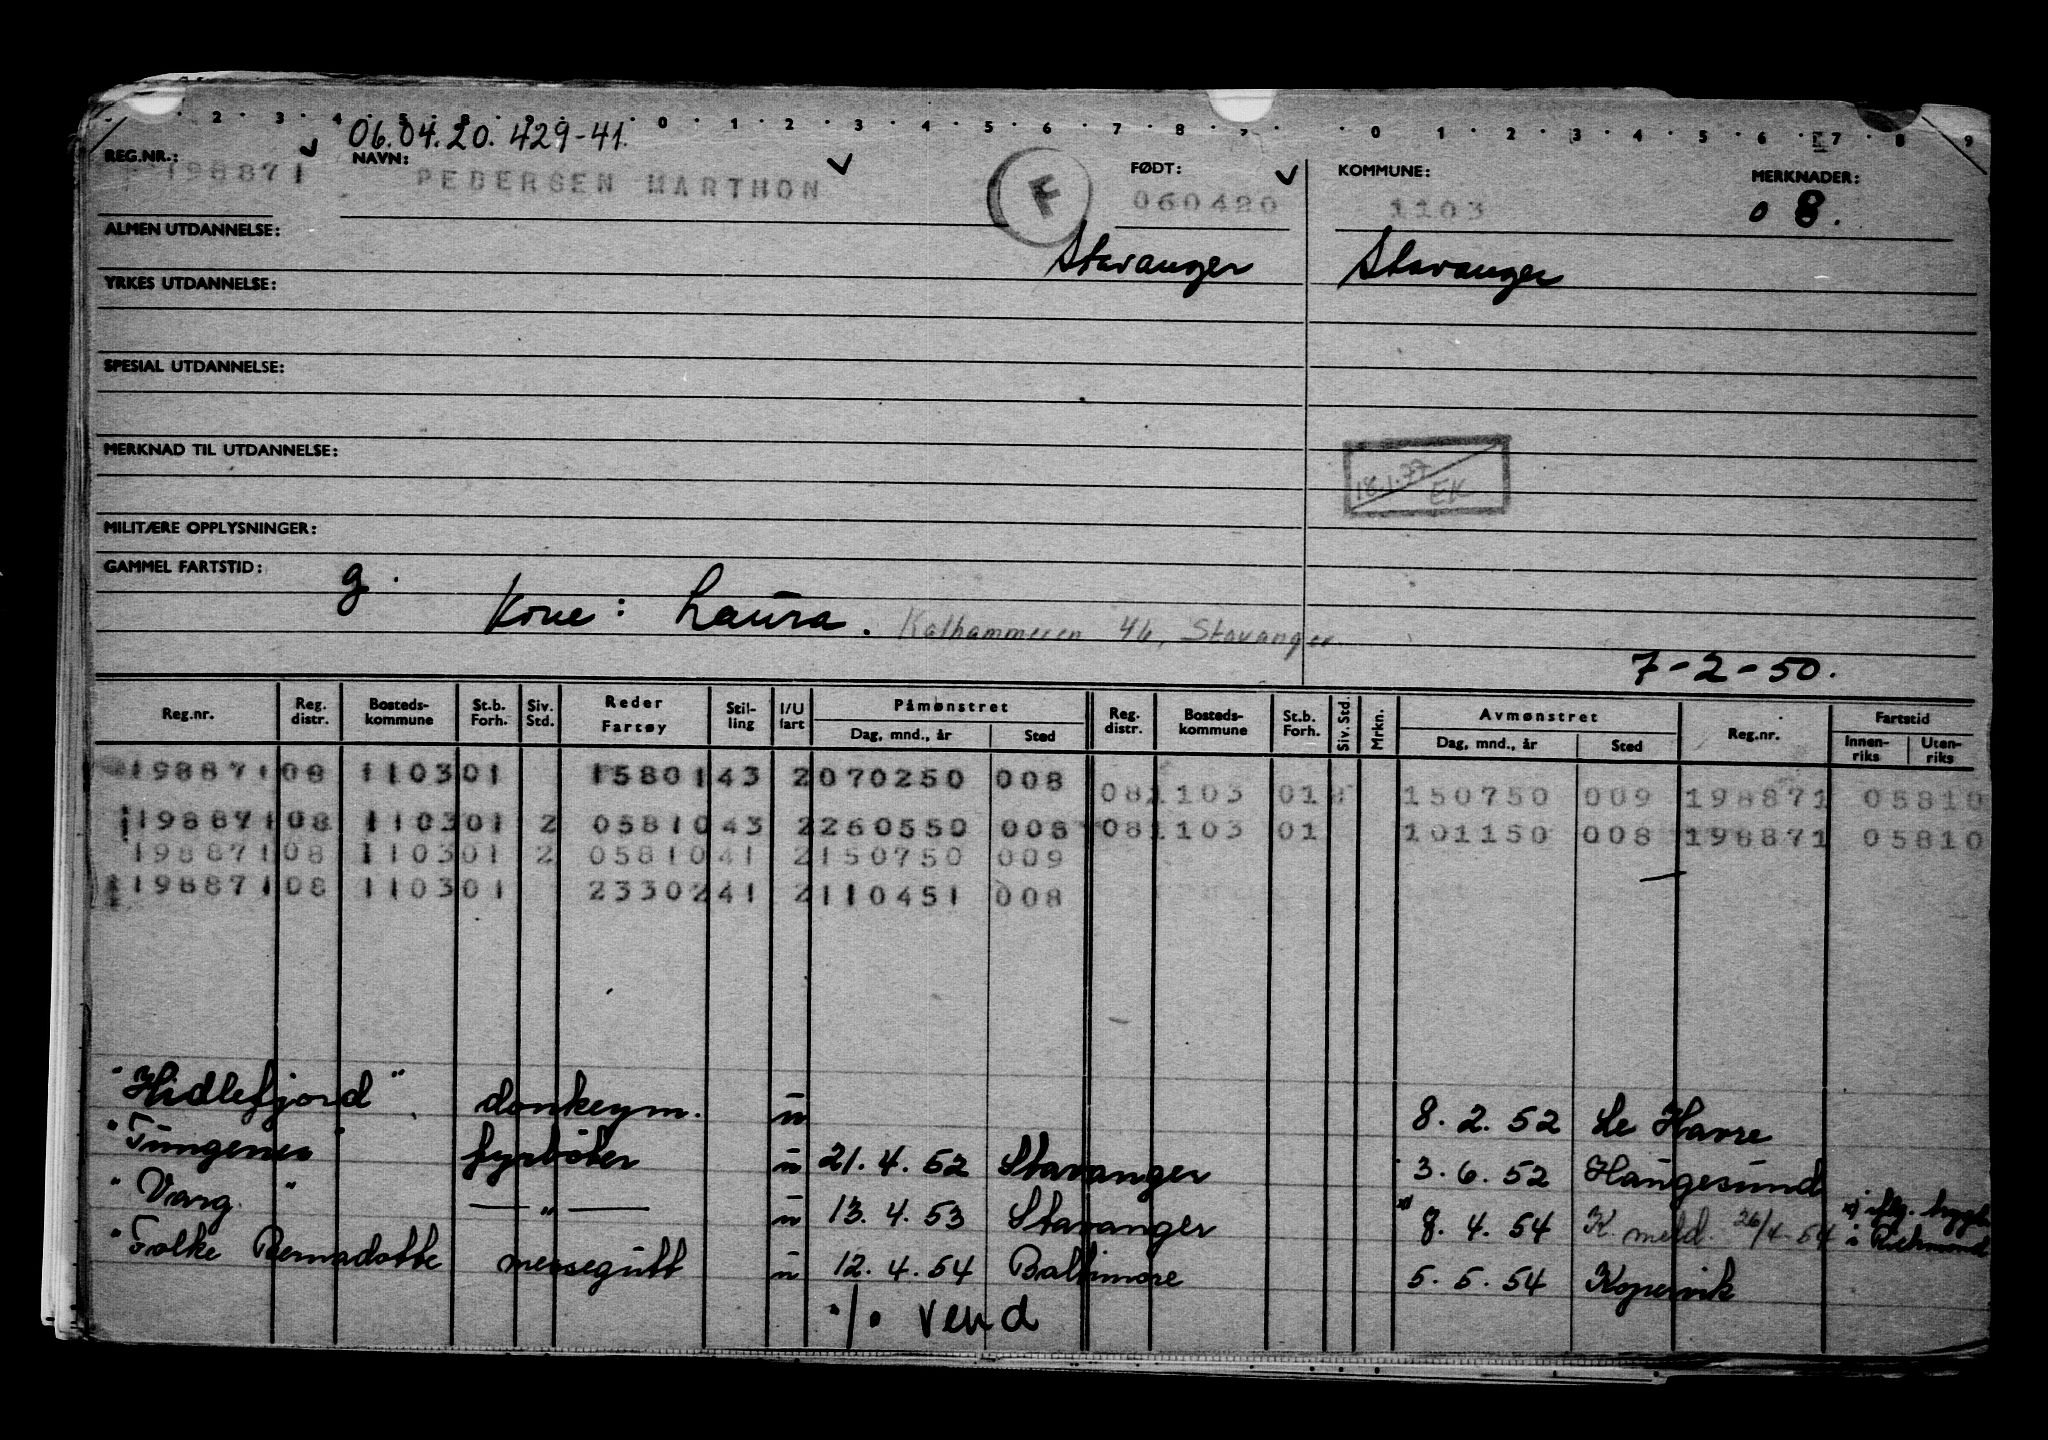 2 3 4 5 0 1 2 3 4 5 6 7 8 0 1 2 3 4 5 6 7 8 9
06.04.20. 429-41.
REG.NR.: NAVN: FØDT: KOMMUNE: MERKNADER:
198871 PEDERSEN MARTHON F 060420 1103 08.
ALMEN UTDANNELSE: Stavanger Stavanger
YRKES UTDANNELSE:
SPESIAL UTDANNELSE:
MERKNAD TIL UTDANNELSE:
18.1.77 EK
MILITÆRE OPPLYSNINGER:
GAMMEL FARTSTID: g.
Kone: Laura. Kalhammeren 46, Stavanger
7-2-50.
Reg.nr. Reg. distr. Bosteds-kommune St.b. Forh. Siv. Std. Reder Fartøy Stil-ling I/U fart Påmønstret Dag, mnd., år Sted Reg. distr. Bosteds-kommune St.b. Forh. Siv. Std. Mrkn. Avmønstret Dag, mnd., år Sted Reg.nr. Fartstid Innen-riks Uten-riks
198871 08 1103 01 15801 43 2 070250 008 08 1103 01 150750 009 198871 05810
198871 08 1103 01 2 05810 43 2 260550 008 08 1103 01 101150 008 198871 05810
198871 08 1103 01 2 05810 41 2 150750 009
198871 08 1103 01 23302 41 2 110451 008
"Hidlefjord" donkeym. u 8.2.52 Le Havre
"Tungenes" fyrbøter u 21.4.52 Stavanger 3.6.52 Haugesund
"Varg." — " — u 13.4.53 Stavanger x) 8.4.54 K. meld. 26/4-54 x) iflg. hyggt i Richmond
"Folke Bernadotte messegutt u 12.4.54 Baltimore 5.5.54 Kopervik
./. vend